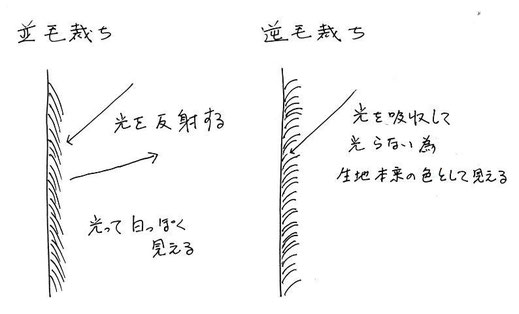 並毛裁ち
光を反射する
光って白っぽく
見える
逆毛裁ち
光を吸収して
光らない為
生地本来の色として見える